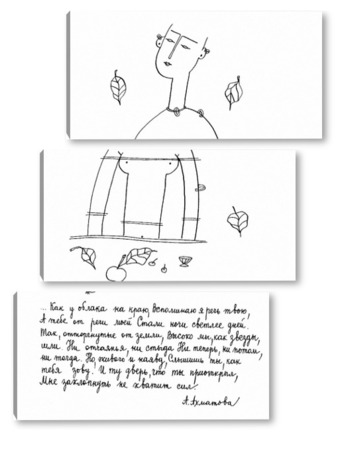 ... Как у облака на краю, Вспоминаю я речь твою,
А тебе от речи моей Стали ночи светлее дней.
Так, отторгнутые от земли, Высоко мы, как звезды,
шли. Ни отчаянья, ни стыда Ни теперь, ни потом,
ни тогда. Но, живого и наяву, Слышишь ты, как
тебя зову. И ту дверь, что ты приоткрыл,
Мне захлопнуть не хватит сил.
А. Ахматова